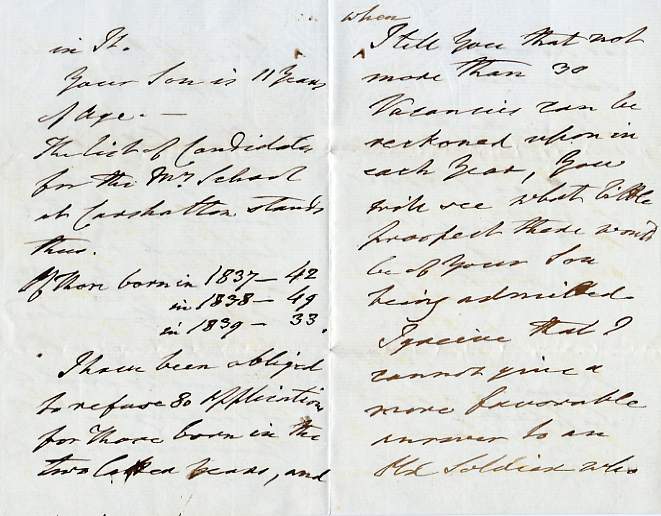 in It.
Your Son is 11 Years
of Age. —
The list of Candidates
for the Mr. School
at Carshalton stands
thus.
Of those born in 1837 – 42
in 1838 – 49
in 1839 – 33.
I have been obliged
to refuse 80 Applications
for those born in the
two latter years, and
when
I tell you that not
more than 30
Vacancies can be
reckoned upon in
each Year, You
will see what little
prospect there would
be of your Son
being admitted.
I grieve that I
cannot give a
more favorable
answer to an
Old Soldier who